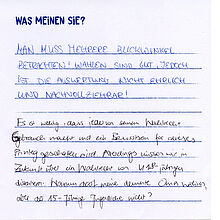 WAS MEINEN SIE?
MAN MUSS MEHRERE BLICKWINKEL
BETRACHTEN! WAHLEN SIND GUT, JEDOCH
IST DIE AUSWERTUNG NICHT EHRLICH
UND NACHVOLLZIEHBAR!
Es ist wichtig, dass
Gebrauch macht und ein Bewusstsein für dieses
Privileg geschaffen wird. Allerdings müssen wir in
Zukunft über ein Wahlrecht von jährigen
Warum darf meine demente Oma wählen,
aber der 15-jährige nicht?